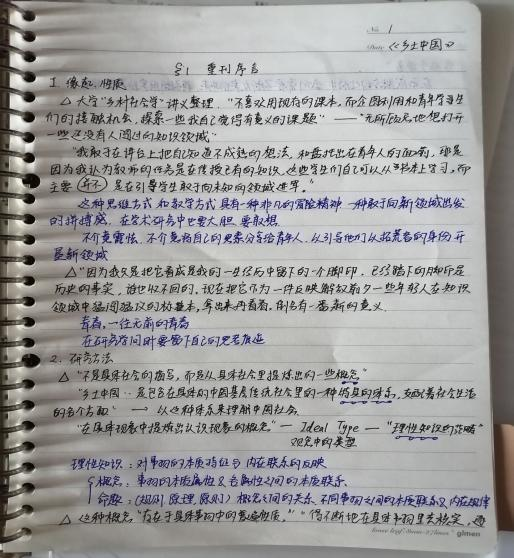 No. 1
Date 《乡土中国》
§1 重刊序言
1. 缘起、性质
△ 大学"乡村社会学"讲义整理. "不喜欢用现存的课本, 而企图利用和青年学生
们的接触机会, 探索一些我自己觉得有意义的课题" —— "无所顾忌地想打开
一些还没有人闯过的知识领域"
"我敢于在讲台上把自己知道不成熟的想法, 和盘托出在青年人的面前, 那是
因为我认为教师的任务是在传授已有的知识, 这些学生们自己可以从书本上学习, 而
主要 是在引导学生敢于向未知的领域进军."
这种思维方式和教学方式具有一种非凡的冒险精神 一种敢于向新领域出发
的拼搏感, 在学术研究中也要大胆 要敢想
不介意露怯, 不介意将自己的思索分享给青年人, 以引导他们以拓荒者的身份开
垦新领域
△ "因为我只是把它看成是我的一生经历中留下的一个脚印, 已经踏下的脚印是
历史的事实, 谁也收不回的, 现在把它作为一件反映解放前夕一些年轻人在知识
领域中猛闯猛攻的标本, 拿出来再看看, 倒另有一番新的意义.
青春, 一往无前的青春
在研究学问时要留下自己的思考痕迹
2. 研究方法
△ "不是具体社会的描写, 而是从具体社会里提炼出的一些概念"
"乡土中国... 是包含在具体的中国基层传统社会里的一种特具的体系, 支配着社会生活
的各个方面" → 以这种体系来理解中国社会.
"在具体现象中提炼出认识现象的概念" — Ideal Type — "理性知识的范畴"
观念中的类型
理性知识: 对事物的本质特征与内在联系的反映
概念: 事物的本质属性及各属性之间的本质联系.
命题: (规则.原理.原则) 概念之间的关系. 不同事物之间的本质联系及内在规律
△ 这种概念"存在于具体事物中的普遍性质." "得不断地在具体事物里去核实, 逐
gimen